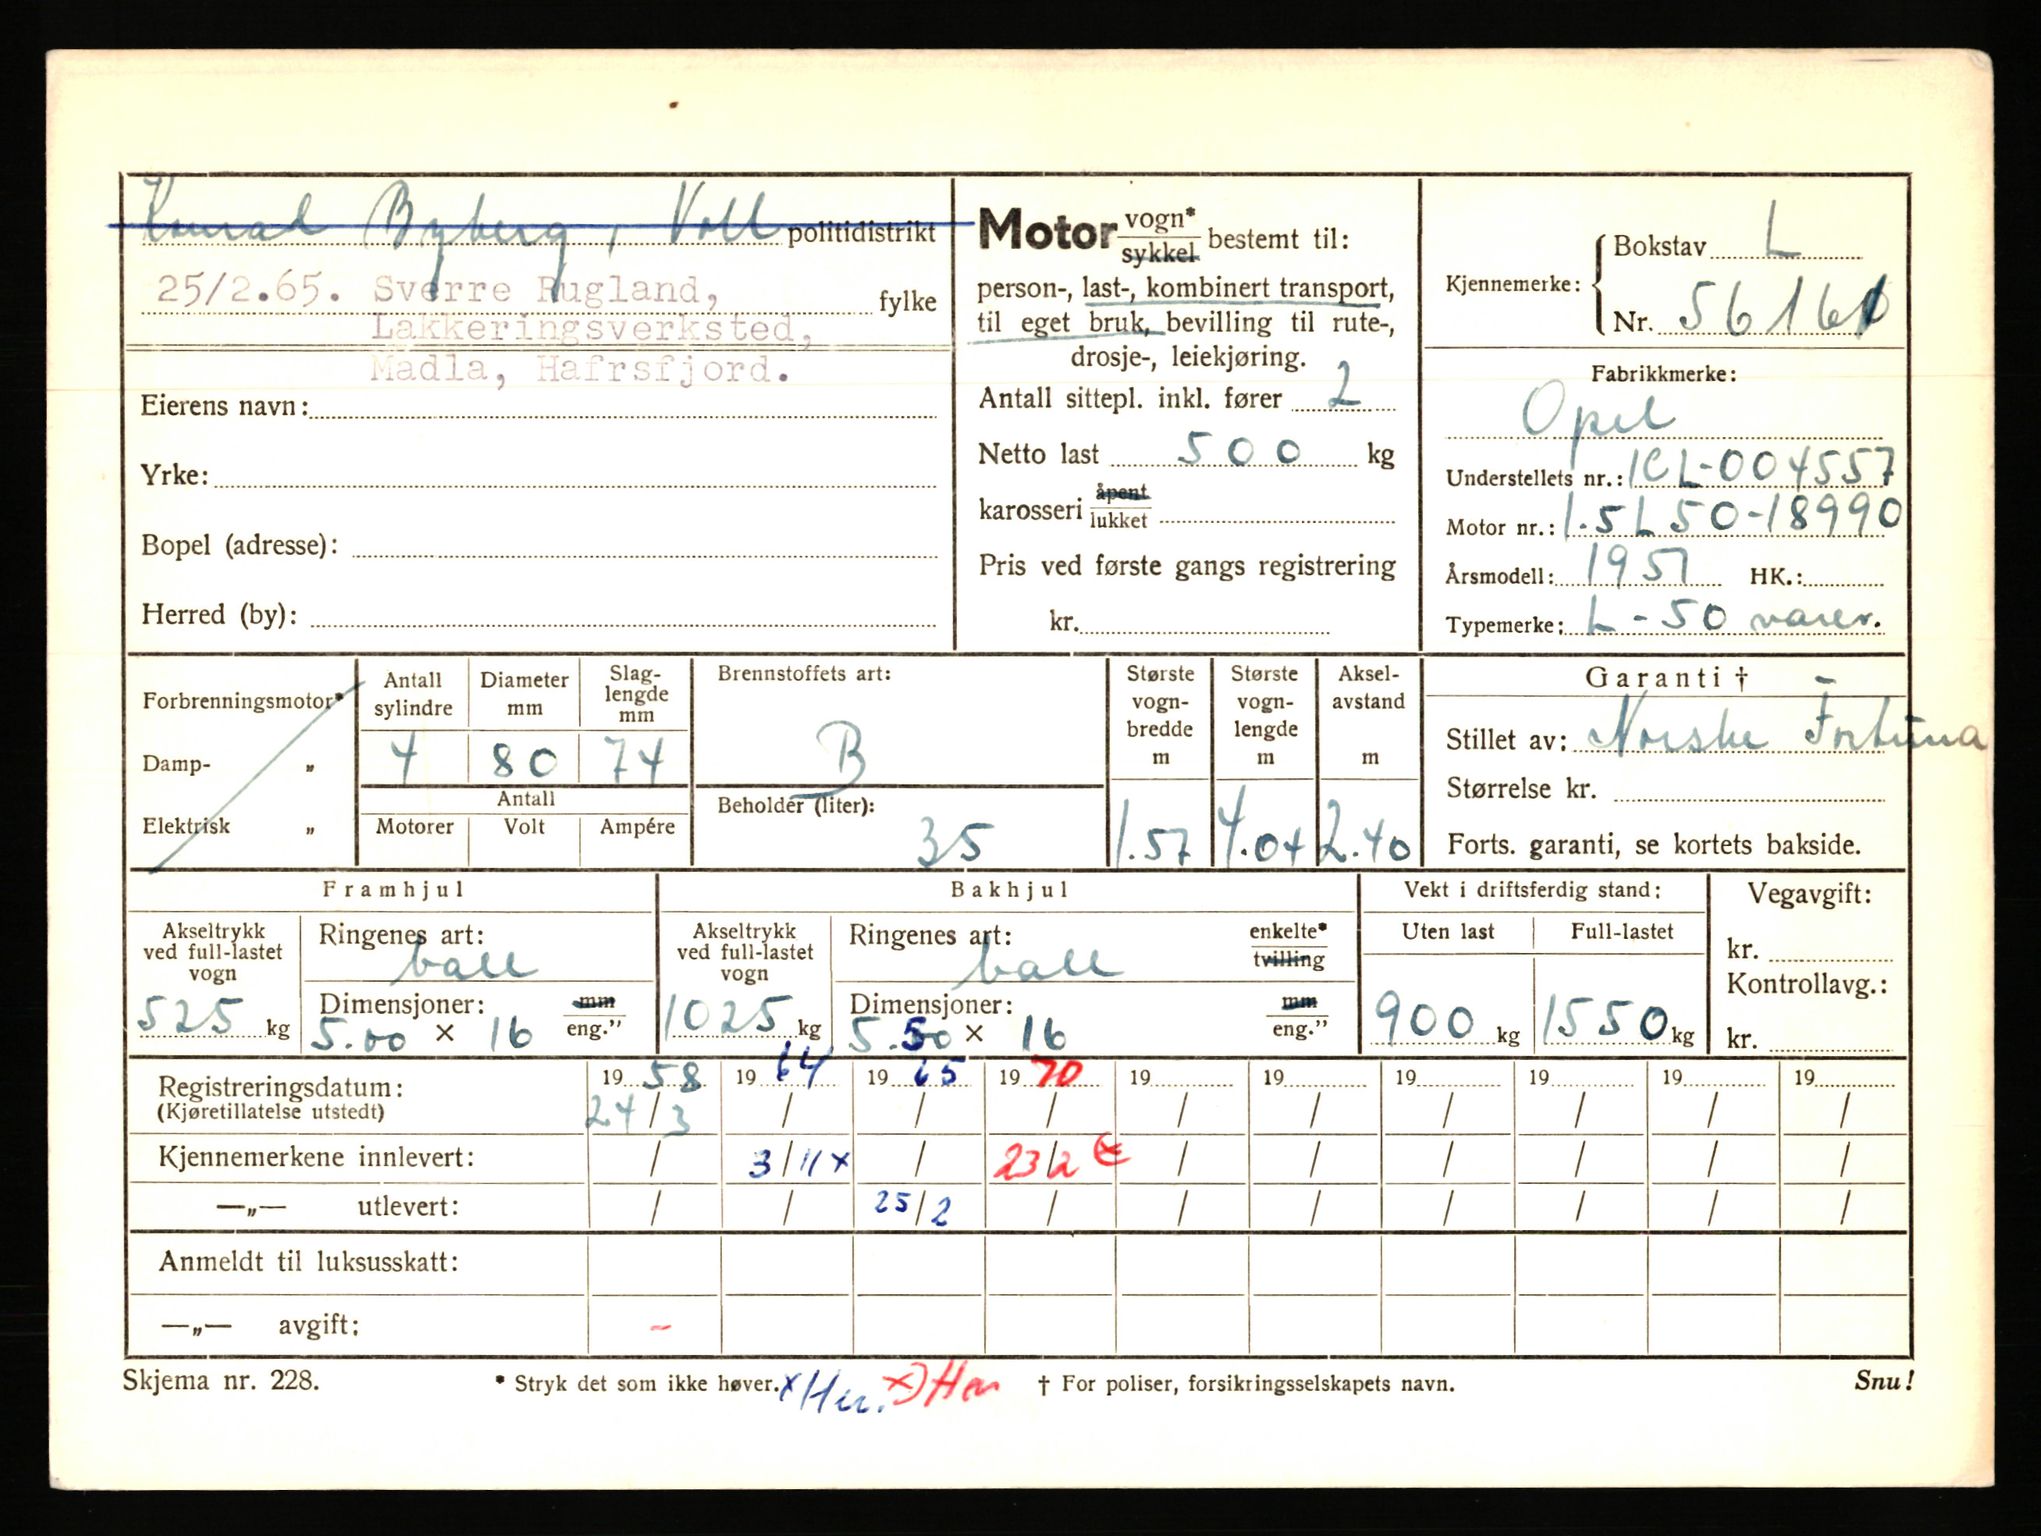 Konrad Byberg, Voll politidistrikt
25/2.65. Sverre Rugland, fylke
Lakkeringsverksted,
Madla, Hafrsfjord.
Eierens navn:
Yrke:
Bopel (adresse):
Herred (by):
Motor vogn* sykkel bestemt til:
person-, last-, kombinert transport,
til eget bruk, bevilling til rute-,
drosje-, leiekjøring.
Antall sittepl. inkl. fører 2
Netto last 500 kg
karosseri åpent lukket
Pris ved første gangs registrering
kr.
Kjennemerke: Bokstav L
Nr. 56161
Fabrikkmerke:
Opel
Understellets nr.: 1CL-004557
Motor nr.: 1.5L50-18990
Årsmodell: 1951 HK.:
Typemerke: L-50 varev.
Forbrenningsmotor*
Damp- „
Elektrisk „
Antall sylindre Diameter mm Slag-lengde mm
4 80 74
Antall
Motorer Volt Ampére
Brennstoffets art:
B
Beholder (liter):
35
Største vogn-bredde m
1.57
Største vogn-lengde m
4.04
Aksel-avstand m
2.40
Garanti †
Stillet av: Norske Fortuna
Størrelse kr.
Forts. garanti, se kortets bakside.
Framhjul
Akseltrykk ved full-lastet vogn
525 kg
Ringenes art:
ball
Dimensjoner: mm
5.00 × 16 eng."
Bakhjul
Akseltrykk ved full-lastet vogn
1025 kg
Ringenes art: enkelte*
ball tvilling
Dimensjoner: mm
5.50 × 16 eng."
Vekt i driftsferdig stand:
Uten last Full-lastet
900 kg 1550 kg
Vegavgift:
kr.
Kontrollavg.:
kr.
Registreringsdatum: 19 58 19 64 19 65 19 70 19 19 19 19 19 19
(Kjøretillatelse utstedt) 24/3 / / / / / / / / /
Kjennemerkene innlevert: / 3/11 x / 23/2 x / / / / / /
—„— utlevert: / / 25/2 / / / / / / /
Anmeldt til luksusskatt:
—„— avgift: -
Skjema nr. 228. * Stryk det som ikke høver. x Hen. x) Hen † For poliser, forsikringsselskapets navn. Snu!